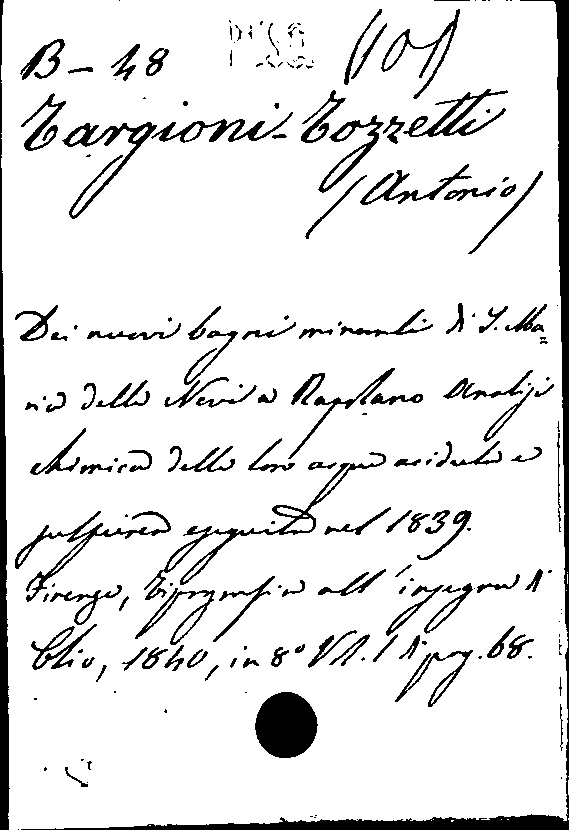 B - 48 PISA (101)
Targioni-Tozzetti
(Antonio)
Dei nuovi bagni minerali di S. Ma=
ria delle Nevi a Rapolano Analisi
chimica delle loro acque acidule e
sulfurea eseguita nel 1839.
Firenze, Tipografia all'insegna di
Clio, 1840, in 8° Vol. 1 di pag. 68.